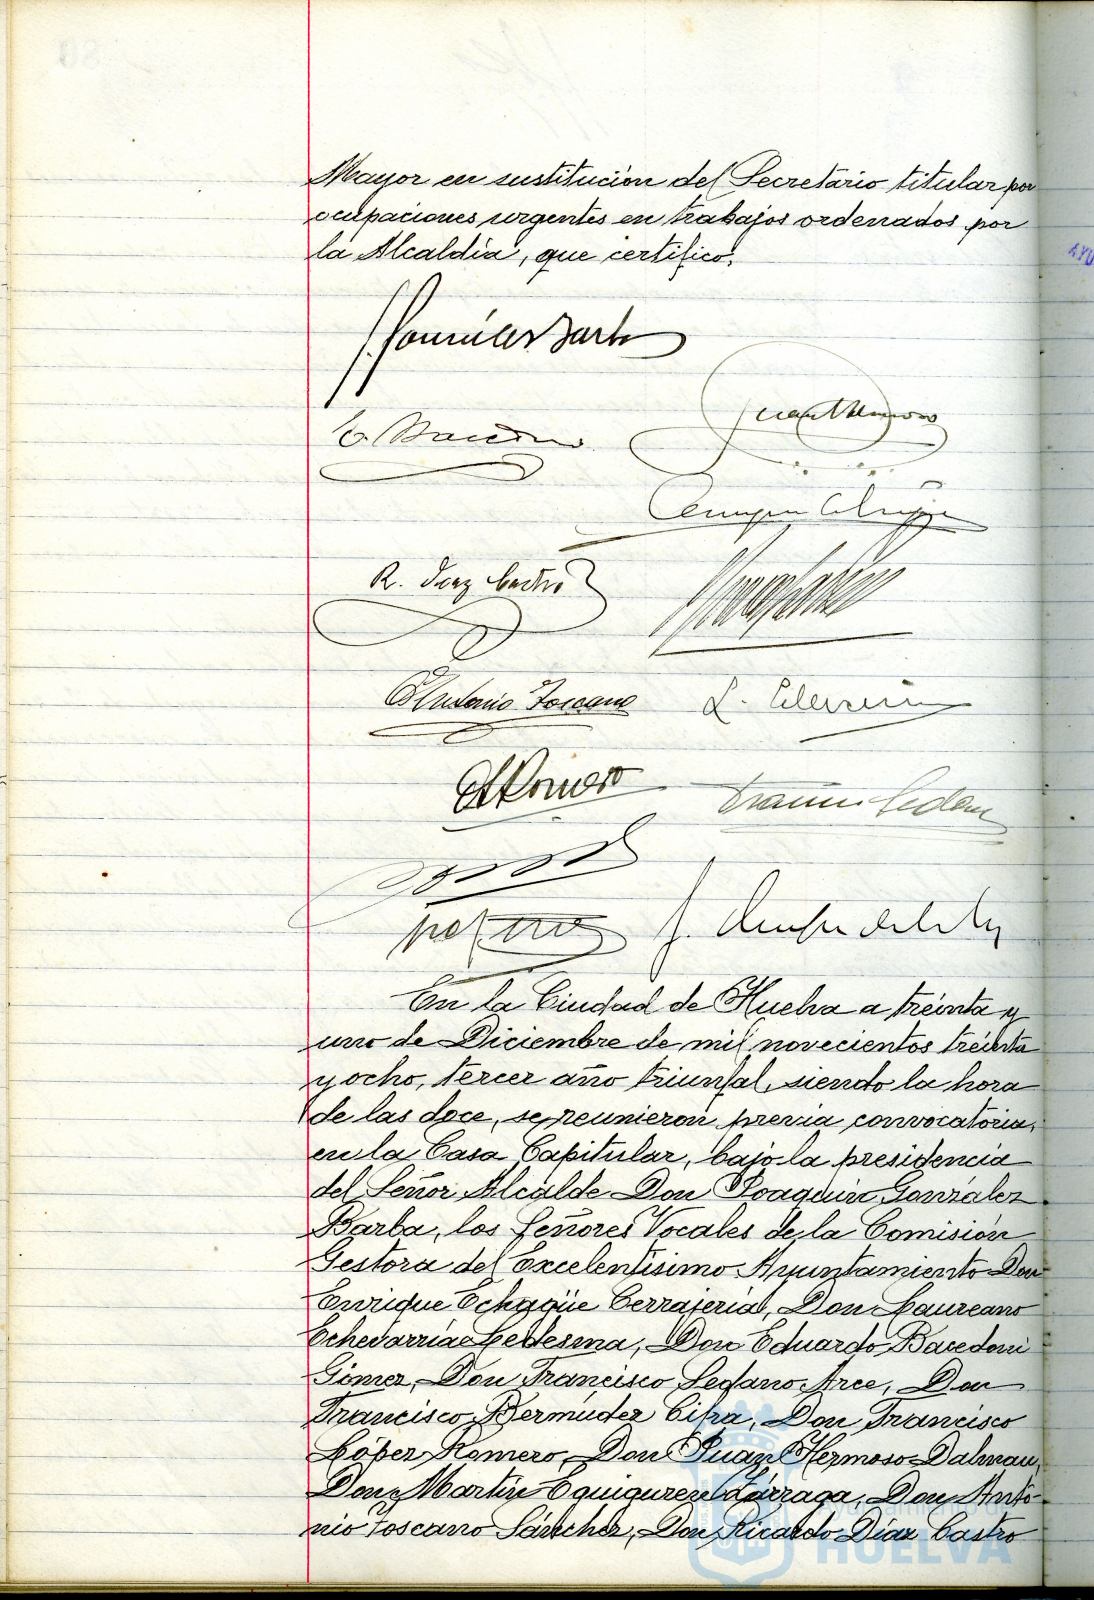 Mayor en sustitución del Secretário titular por
ocupaciones urgentes en trabajos ordenados por
la Alcaldía, que certifico.
González Barba
E. Bacedoni
Juan Hermoso
Enrique Echagüe
R. Diaz Castro
Antonio Toscano
L. Echevarria
Romero
Francisco Sedano
En la Ciudad de Huelva a treinta y
uno de Diciembre de mil novecientos treinta
y ocho, tercer año triunfal, siendo la hora
de las doce, se reunieron previa convocatoria,
en la Casa Capitular, bajo la presidencia
del Señor Alcalde Don Joaquin González
Barba, los Señores Vocales de la Comisión
Gestora del Excelentísimo Ayuntamiento Don
Enrique Echagüe Cerrajeria, Don Laureano
Echevarría Ledesma, Don Eduardo Bacedoni
Gómez, Don Francisco Sedano Arce, Don
Francisco Bermúdez Cifra, Don Francisco
López Romero, Don Juan Hermoso Dalmau,
Don Martín Eguiguren Lárraga, Don Anto-
nio Toscano Sánchez, Don Ricardo Díaz Castro
Ayuntamiento de
HUELVA
AYU